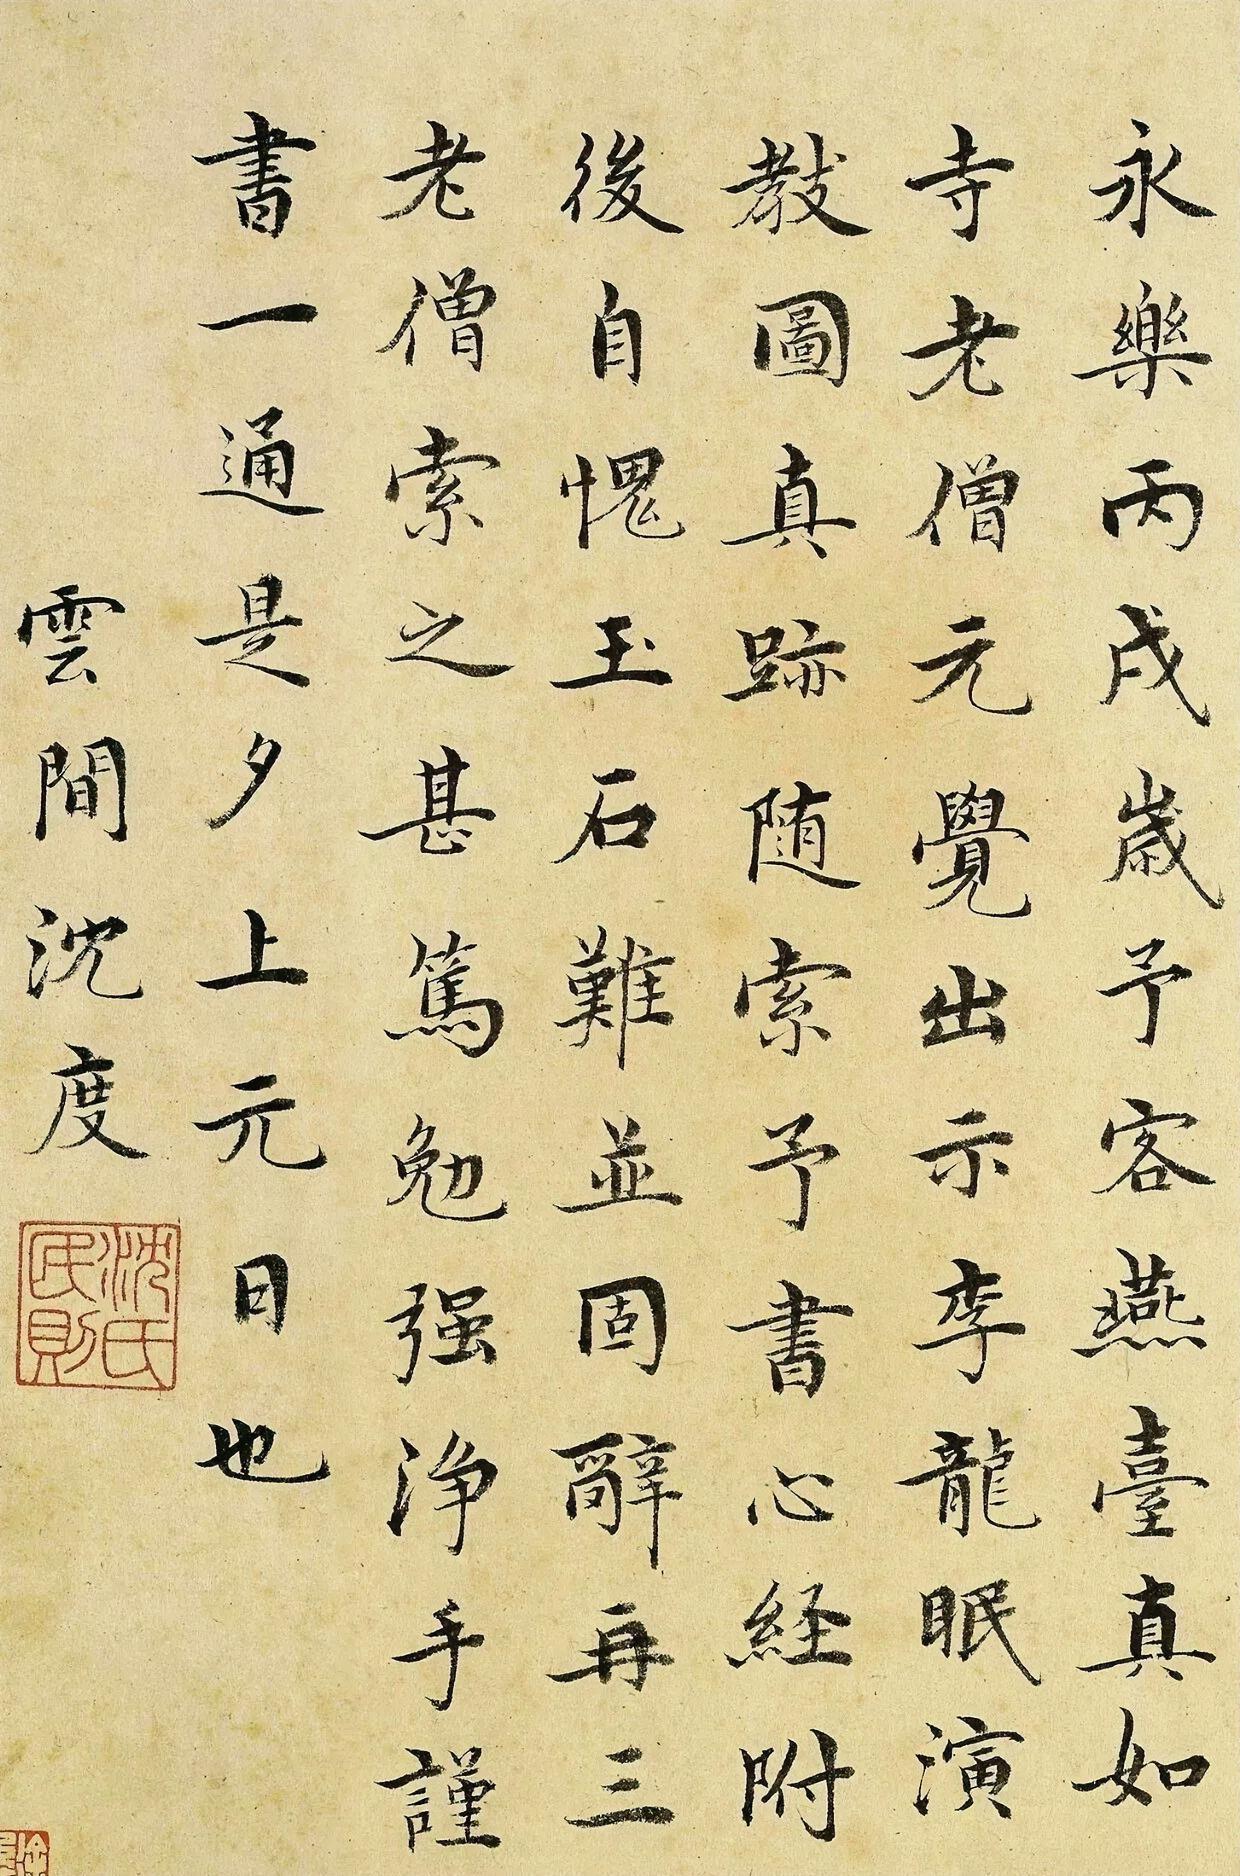 永樂丙戌歲予客燕臺真如
寺老僧元覺出示李龍眠演
教圖真跡随索予書心経附
後自愧玉石難並固辭再三
老僧索之甚篤勉强浄手謹
書一通是夕上元日也
雲間沈度
沈氏民則